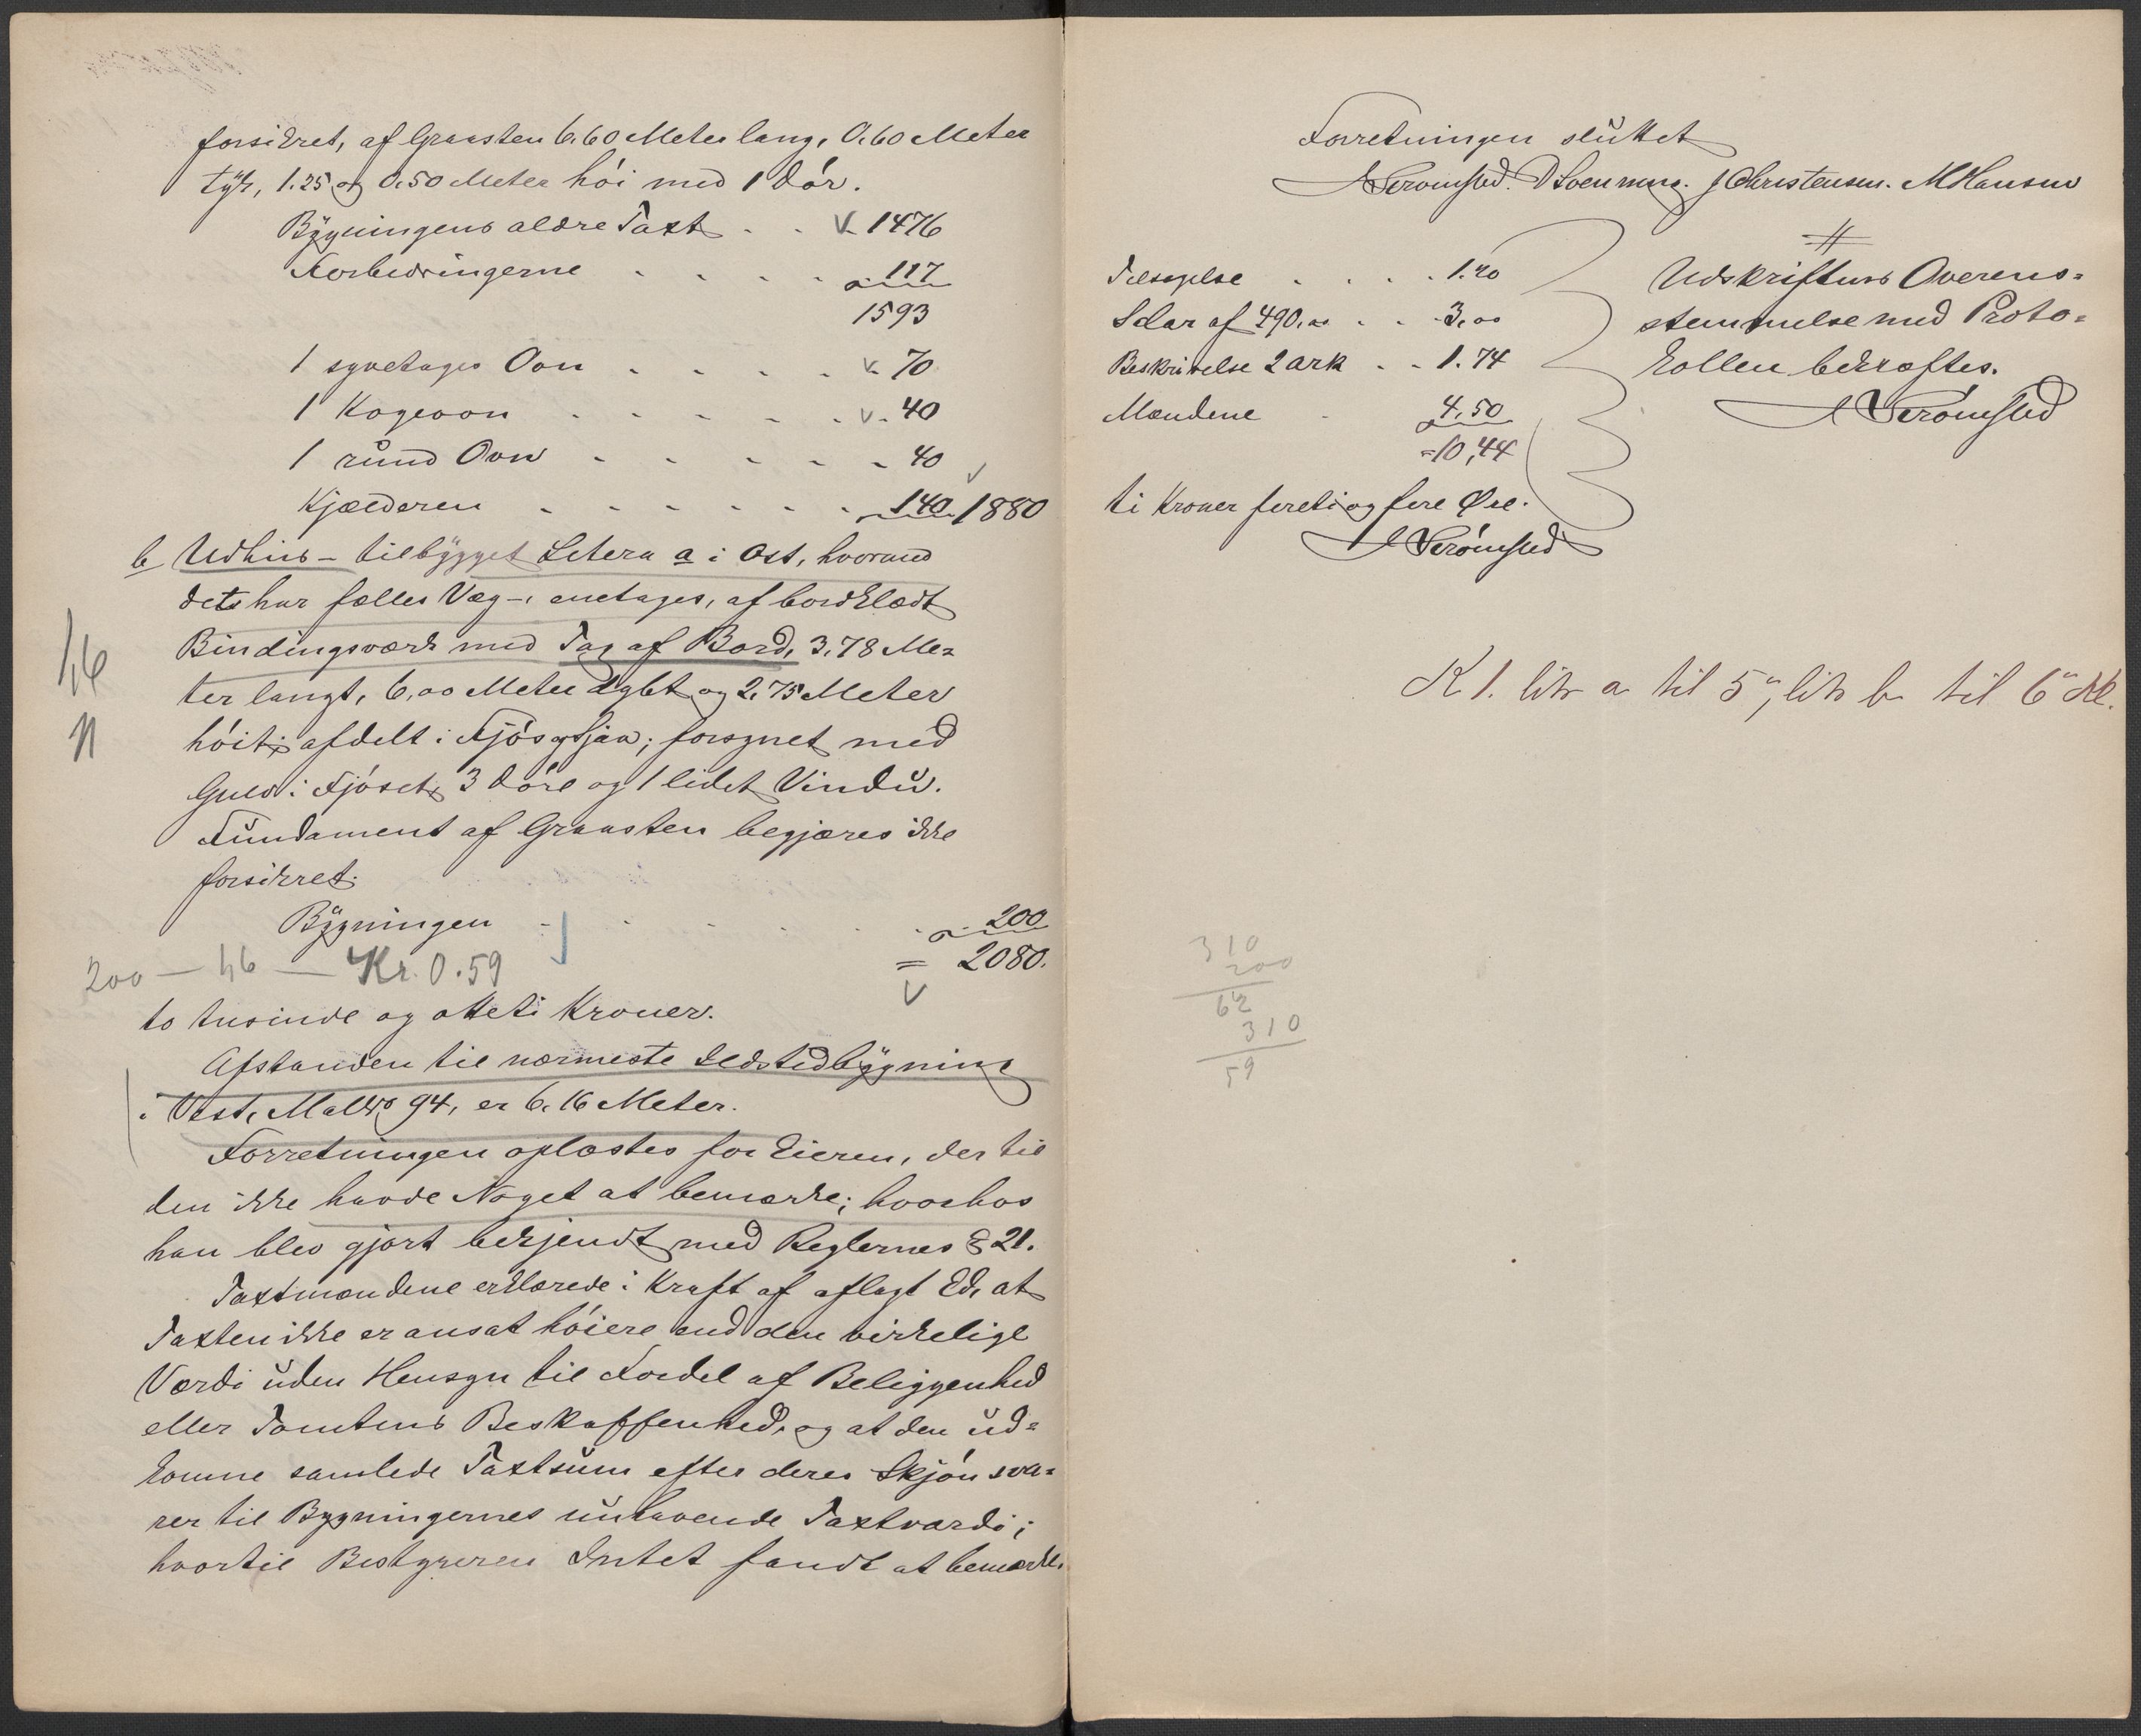 forsikret, af Graasten 6.60 Meter lang, 0.60 Meter
tyk, 1.25 og 0.50 Meter hói med 1 Dór.
Bygningens ældre Taxt . . 1476
Forbedringerne . . . . 117
1593
1 syvetages Ovn . . . . 70
1 Kogeovn . . . . . 40
1 rund Ovn . . . . . 40
Kjælderen . . . . . . 140 1880
b Udhus - tilbygget Litera a i Øst, hvormed
det har fælles Væg -, enetages, af bordklædt
Bindingsværk med Tag af Bord, 3,78 Me=
ter langt, 6,00 Meter dybt og 2,75 Meter
hóit; afdelt i Fjós og Sjaa; forsynet med
Gulv i Fjóset, 3 Dóre og 1 lidet Vindu.
Fundament af Graasten begjæres ikke
forsikret.
Bygningen . . . . . 200
= 2080.
200 — h6 — Kr. 0.59
to tusinde og otteti Kroner.
Afstanden til nærmeste Ildstedbygning
i Vest, Mat No 94, er 6.16 Meter.
Forretningen oplæstes for Eieren, der til
den ikke havde Noget at bemærke; hvorhos
han blev gjort bekjendt med Reglernes § 21.
Taxtmændene erklærede i Kraft af aflagt Ed, at
Taxten ikke er ansat hóiere end den virkelige
Værdi uden Hensyn til Fordel af Beliggenhed
eller Tomtens Beskaffenhed, og at den ud=
komne samlede Taxtsum efter deres Skjón sva=
rer til Bygningernes nuhavende Taxtværdi;
hvortil Bestyreren Intet fandt at bemærke.
Forretningen sluttet
A Strómsted. J Christensen. M Hansen
Tilsigelse . . . . 1.20
Salær af 490.00 . . 3,00
Beskrivelse 2 ark . . 1.74
Mændene . 4,50
=10,44
ti Kroner fireti og fire Øre.
A Strómsted
Udskriftens Overens=
stemmelse med Proto=
kollen bekræftes.
A Strómsted
K 1. litr a til 5", litr b til 6" Kl.
310
200
62
310
59